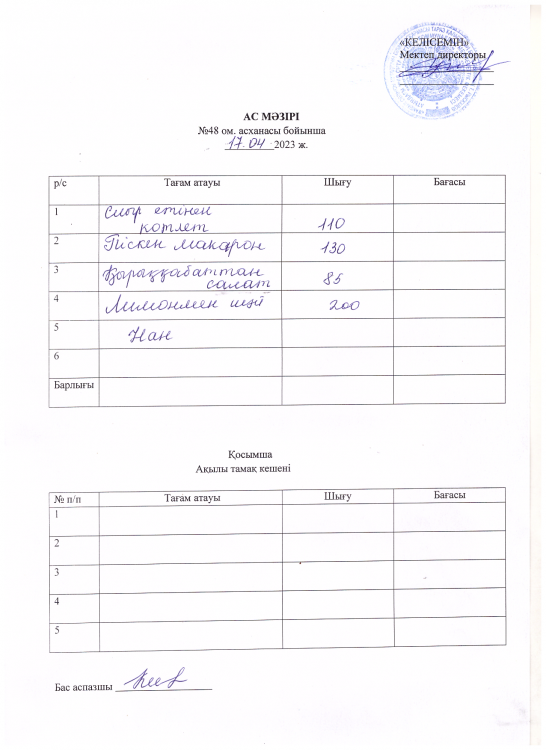 «КЕЛІСЕМІН»
Мектеп директоры
АС МӘЗІРІ
№48 ом. асханасы бойынша
17.04 2023 ж.
р/с Тағам атауы Шығу Бағасы
1 Сиыр етінен
котлет 110
2 Піскен макарон 130
3 Қырыққабаттан
салат 85
4 Лимонмен шәй 200
5 Нан
6
Барлығы
Қосымша
Ақылы тамақ кешені
№ п/п Тағам атауы Шығу Бағасы
1
2
3
4
5
Бас аспазшы